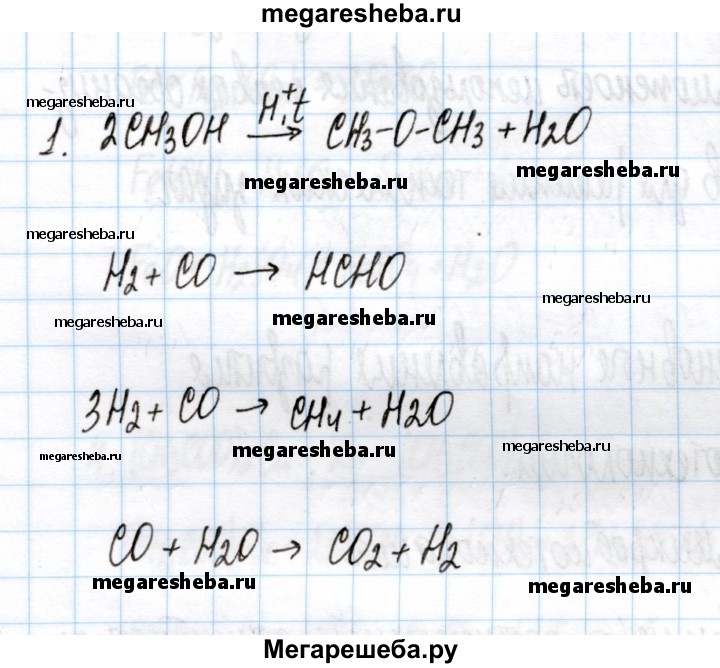 megaresheba.ru
megaresheba.ru
1. 2CH3OH H+,t → CH3-O-CH3 + H2O
megaresheba.ru
megaresheba.ru
megaresheba.ru
H2 + CO → HCHO
megaresheba.ru
megaresheba.ru
megaresheba.ru
3H2 + CO → CH4 + H2O
megaresheba.ru
megaresheba.ru
megaresheba.ru
CO + H2O → CO2 + H2
megaresheba.ru
megaresheba.ru
Мегарешеба.ру